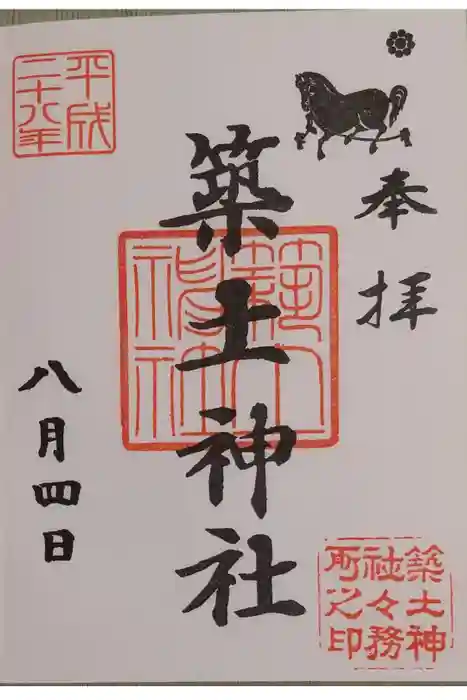 奉拝
築土神社
八月四日
平成
二十八年
築土神
社々務
所之印